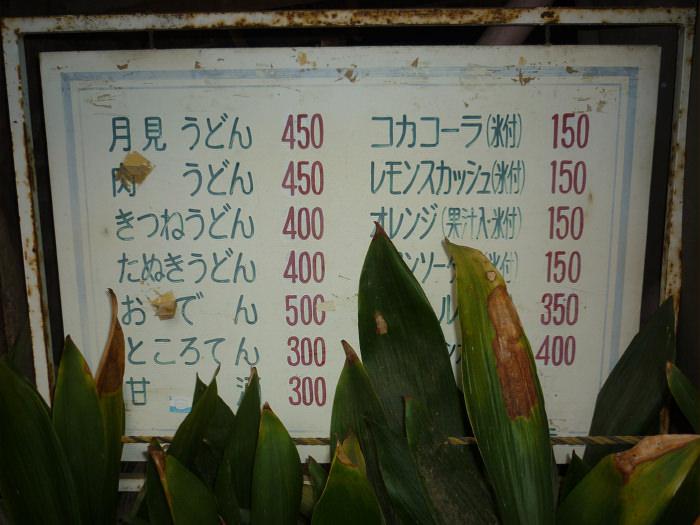 月見うどん 450
肉うどん 450
きつねうどん 400
たぬきうどん 400
おでん 500
ところてん 300
甘酒 300
コカコーラ(氷付) 150
レモンスカッシュ(氷付) 150
オレンジ(果汁入・氷付) 150
ンソーダ(氷付) 150
ル 350
400